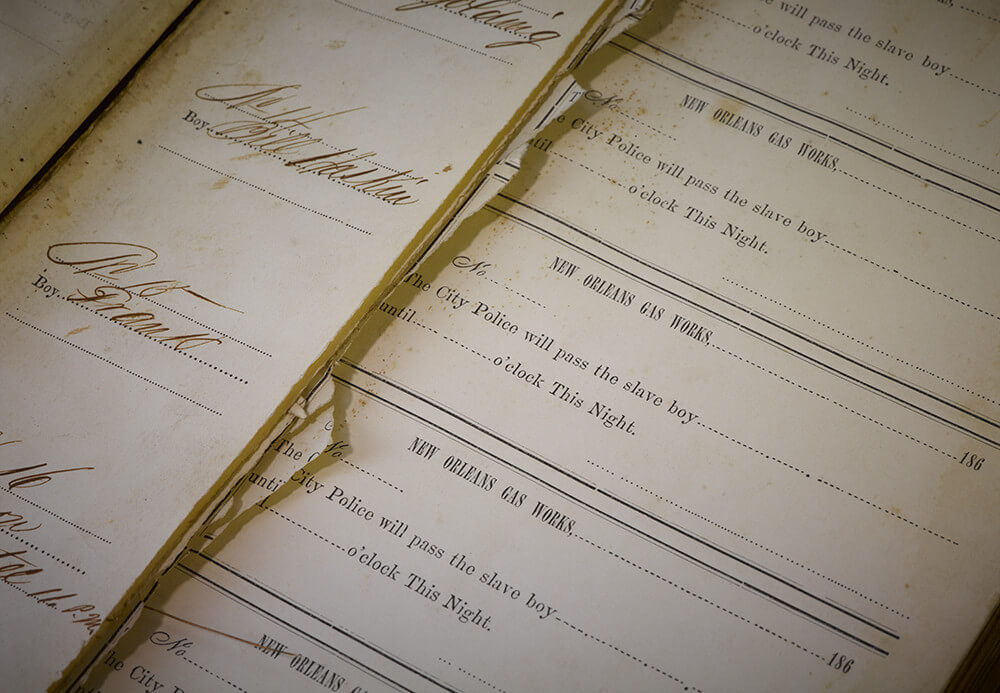 Golding
Boy
Boy Frank
o'clock This Night.
will pass the slave boy
No
NEW ORLEANS GAS WORKS,
The City Police will pass the slave boy
until o'clock This Night.
No. NEW ORLEANS GAS WORKS, 186
The City Police will pass the slave boy
until o'clock This Night.
No. NEW ORLEANS GAS WORKS, 186
The City Police will pass the slave boy
until o'clock This Night.
No. NEW ORLEANS GAS WORKS
The City Police
until